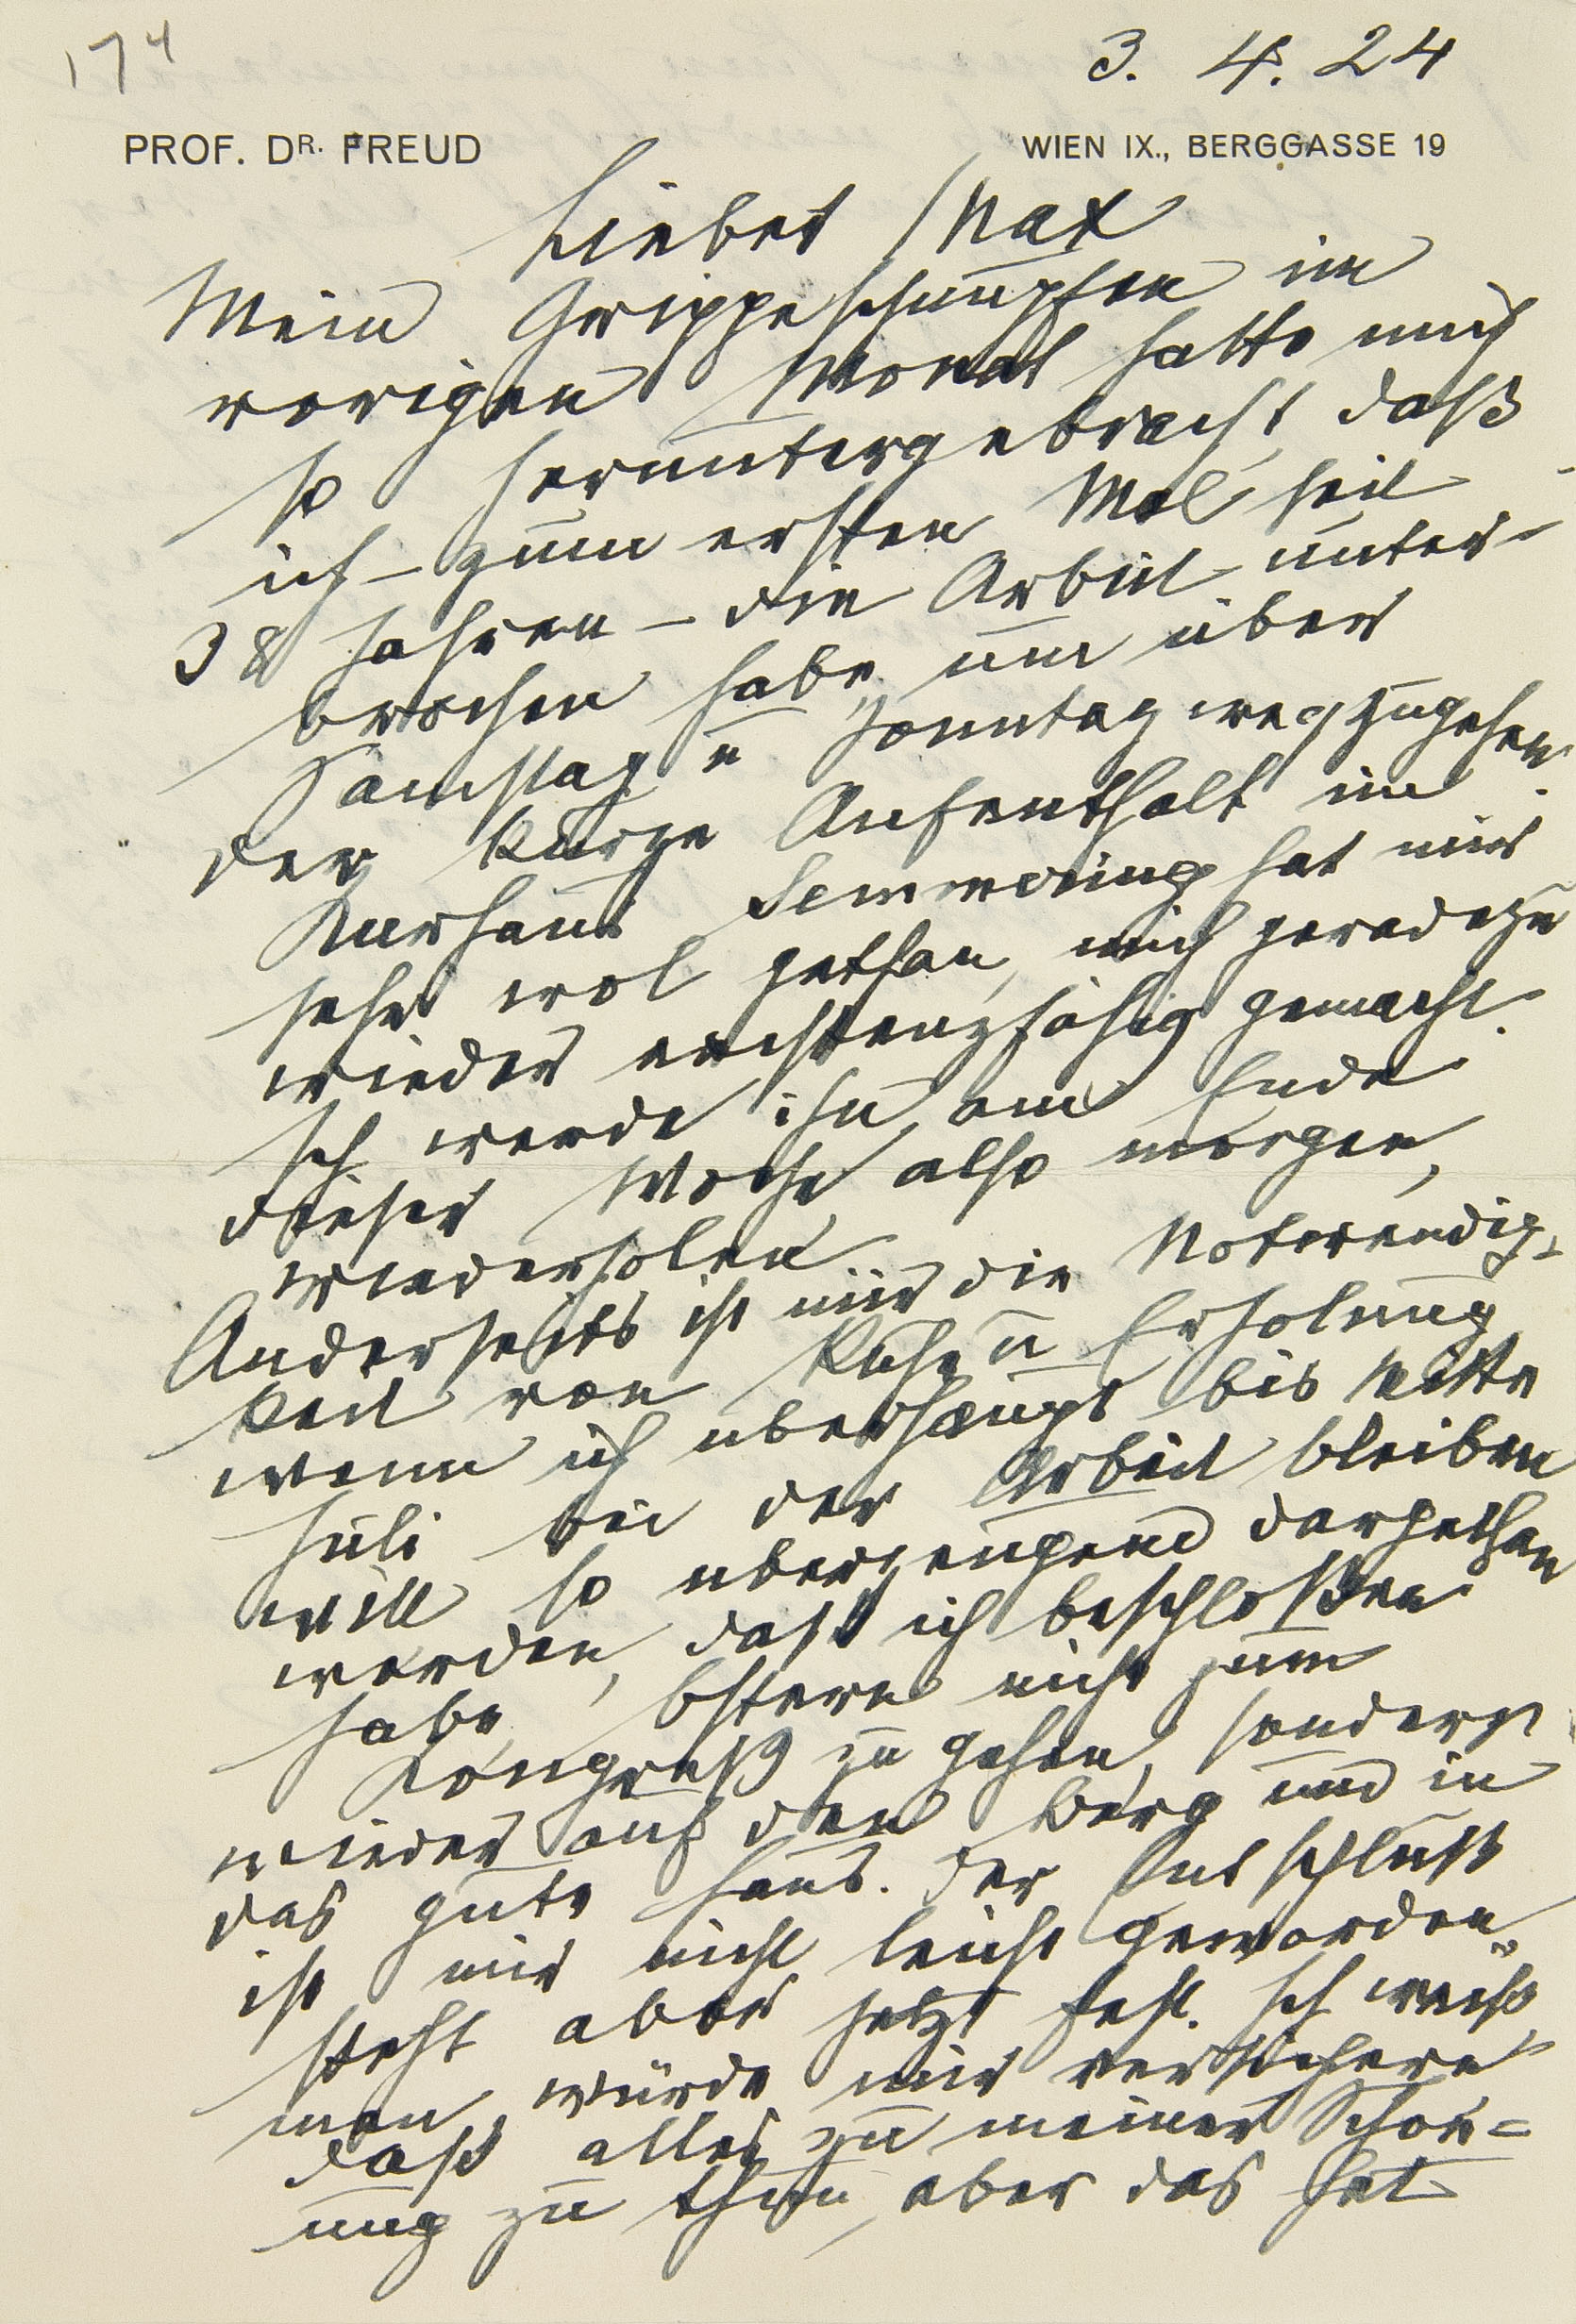 174
3. 4. 24
PROF. DR. FREUD
WIEN IX., BERGGASSE 19
Lieber Max
Mein Grippeschnupfen im
vorigen Monat hatte mich
so heruntergebracht, daß
ich – zum ersten Mal seit
38 Jahren – die Arbeit unter-
brochen habe, um über
Samstag u Sonntag wegzugehen.
Der kurze Aufenthalt im
Kurhaus Semmering hat mir
sehr wol gethan, mich geradezu
wieder existenzfähig gemacht.
Ich werde ihn am Ende
dieser Woche, also morgen,
wiederholen.
Anderseits ist mir die Notwendig-
keit von Ruhe u Erholung
wenn ich überhaupt bis Mitte
Juli bei der Arbeit bleiben
will so überzeugend dargethan
worden, daß ich beschloßen
habe, Ostern nicht zum
Kongreß zu gehen, sondern
wieder auf den Berg und in
das gute Haus. Der Entschluß
ist mir nicht leicht geworden,
steht aber jetzt fest. Ich weiß,
man würde mir versichern
daß alles zu meiner Schon=
ung zu thun, aber das hat